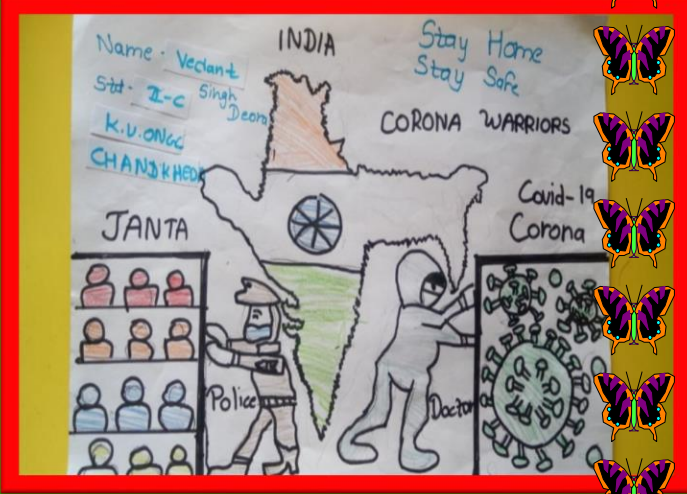 Name - Vedant
Singh
Deora
Std - II-C
K.V.ONGC
CHANDKHEDA
INDIA
Stay Home
Stay Safe
CORONA WARRIORS
JANTA
Covid-19
Corona
Police
Doctor